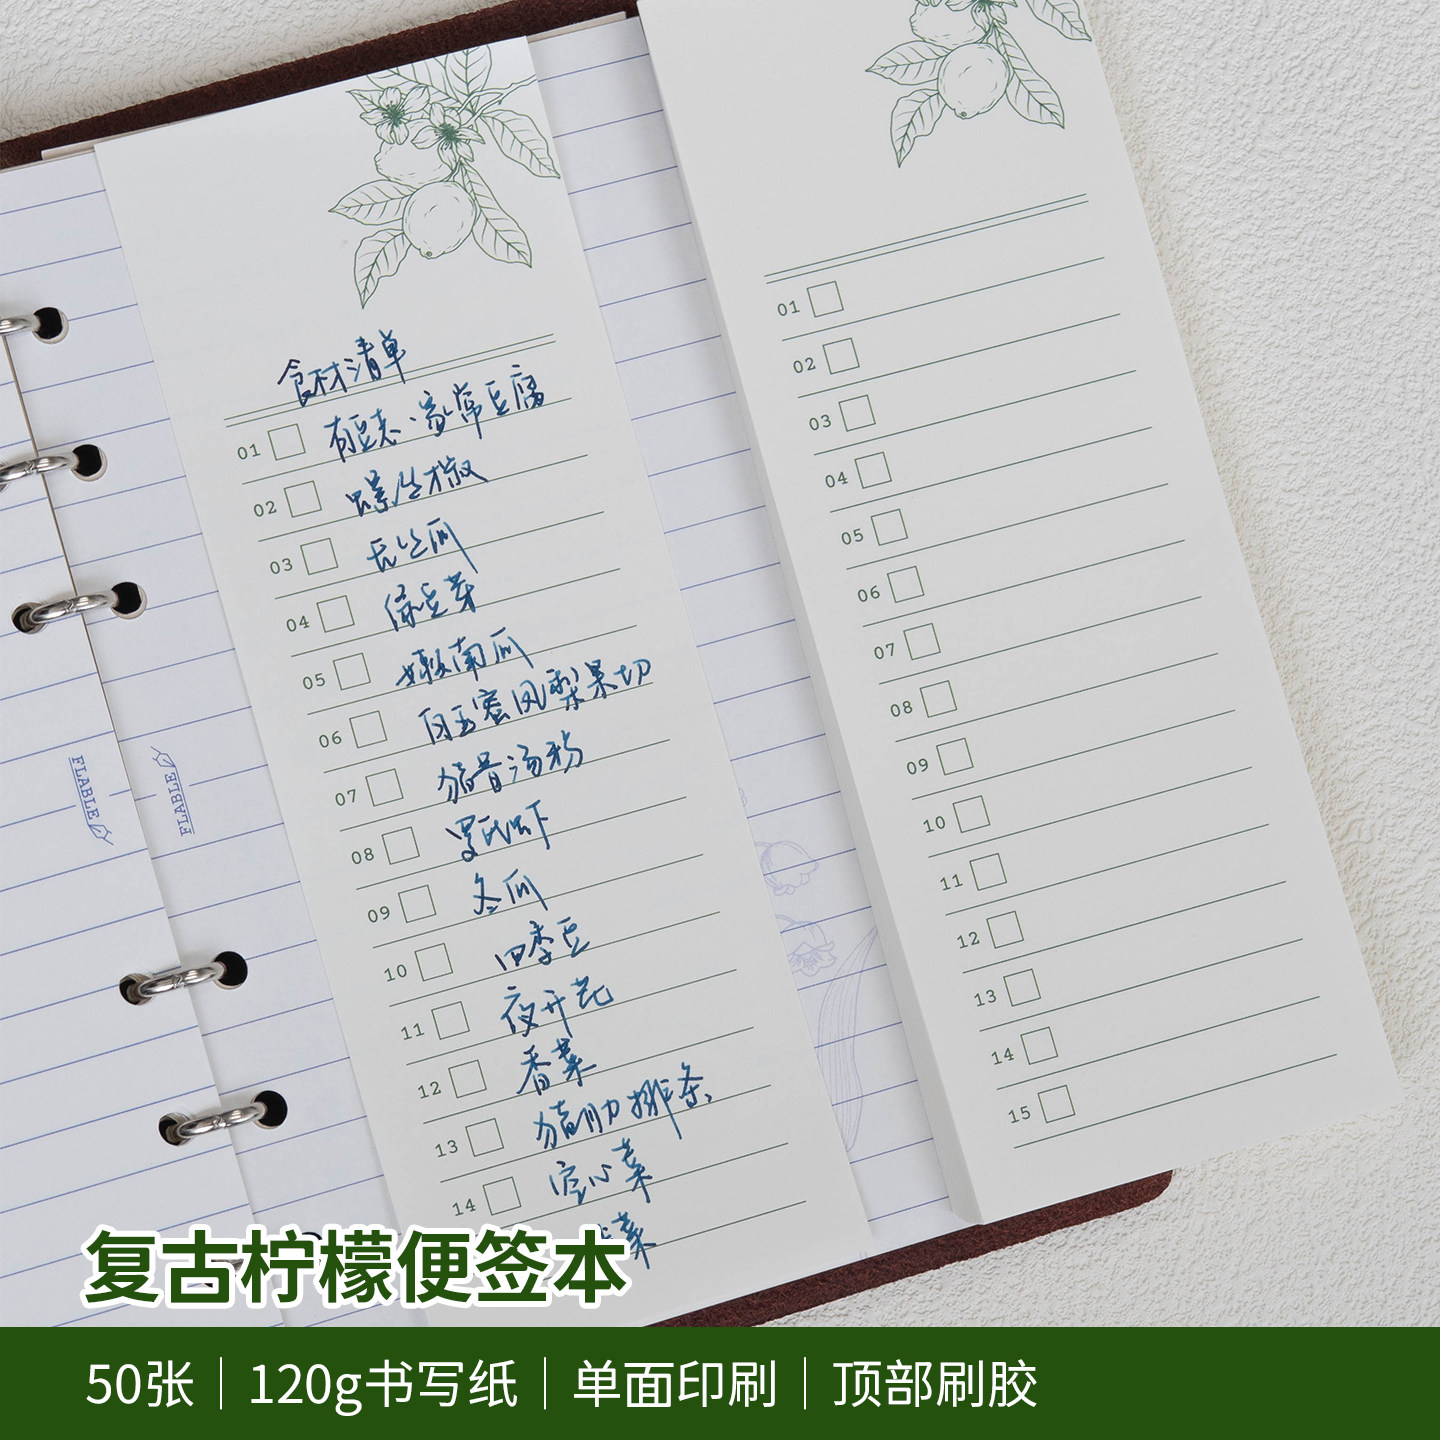 食材清单
01 有豆志·家常豆腐
02 螺丝椒
03 长丝瓜
04 绿豆芽
05 嫩南瓜
06 白玉蜜凤梨果切
07 猪骨汤粉
08 罗氏虾
09 冬瓜
10 四季豆
11 夜开花
12 香菜
13 猪肋排条
14 空心菜
菜
01
02
03
04
05
06
07
08
09
10
11
12
13
14
15
FLABLE
FLABLE
复古柠檬便签本
50张 | 120g书写纸 | 单面印刷 | 顶部刷胶